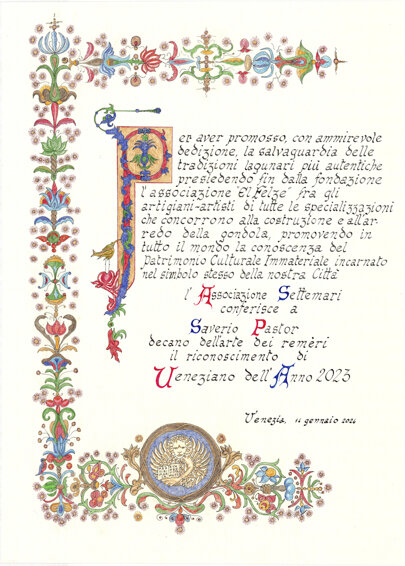 Per aver promosso, con ammirevole
dedizione, la salvaguardia delle
tradizioni lagunari più autentiche
presiedendo fin dalla fondazione
l'associazione "El Felze" fra gli
artigiani-artisti di tutte le specializzazioni
che concorrono alla costruzione e all'ar-
redo della gondola, promovendo in
tutto il mondo la conoscenza del
Patrimonio Culturale Immateriale incarnato
"nel simbolo stesso della nostra Città"
l'Associazione Settemari
conferisce a
Saverio Pastor
decano dell'arte dei remèri
il riconoscimento di
Veneziano dell'Anno 2023
Venezia, 11 gennaio 2024